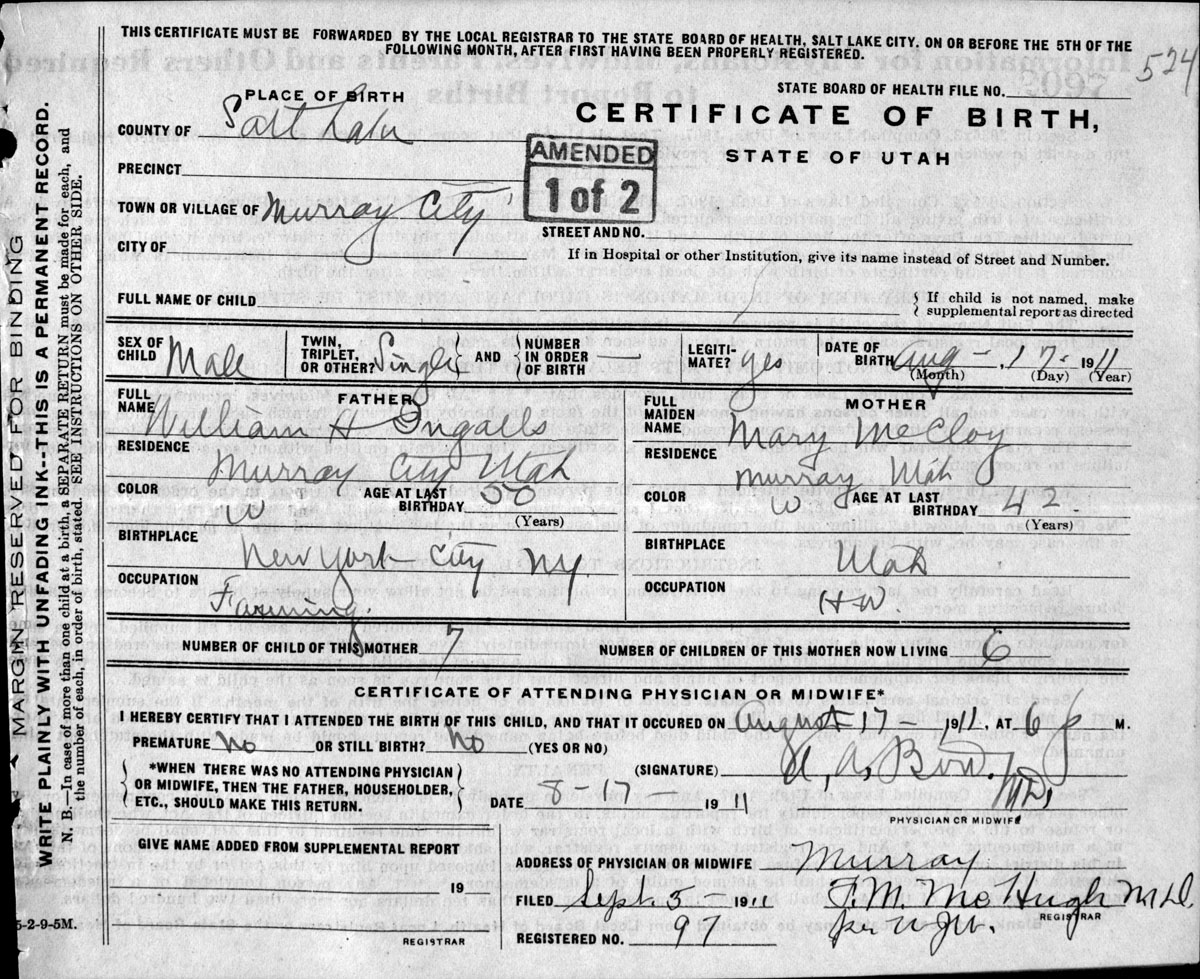 THIS CERTIFICATE MUST BE FORWARDED BY THE LOCAL REGISTRAR TO THE STATE BOARD OF HEALTH, SALT LAKE CITY, ON OR BEFORE THE 5TH OF THE
FOLLOWING MONTH, AFTER FIRST HAVING BEEN PROPERLY REGISTERED.
524
STATE BOARD OF HEALTH FILE NO.
PLACE OF BIRTH
CERTIFICATE OF BIRTH,
STATE OF UTAH
COUNTY OF Salt Lake
AMENDED
1 of 2
PRECINCT
TOWN OR VILLAGE OF Murray City
STREET AND NO.
CITY OF
If in Hospital or other Institution, give its name instead of Street and Number.
FULL NAME OF CHILD
If child is not named, make
supplemental report as directed
SEX OF CHILD Male TWIN, TRIPLET, OR OTHER? Single AND NUMBER IN ORDER OF BIRTH — LEGITI-MATE? yes DATE OF BIRTH Aug - 17 - 1911
(Month) (Day) (Year)
FATHER
FULL NAME William H Ingalls
RESIDENCE
Murray City Utah
COLOR W AGE AT LAST BIRTHDAY 50
(Years)
BIRTHPLACE
New York City NY.
OCCUPATION
Farming.
MOTHER
FULL MAIDEN NAME Mary McCloy
RESIDENCE
Murray Utah
COLOR W AGE AT LAST BIRTHDAY 42
(Years)
BIRTHPLACE
Utah
OCCUPATION
H W
NUMBER OF CHILD OF THIS MOTHER 7 NUMBER OF CHILDREN OF THIS MOTHER NOW LIVING 6
CERTIFICATE OF ATTENDING PHYSICIAN OR MIDWIFE*
I HEREBY CERTIFY THAT I ATTENDED THE BIRTH OF THIS CHILD, AND THAT IT OCCURED ON August 17 - 1911, AT 6 P M.
PREMATURE No OR STILL BIRTH? No (YES OR NO)
*WHEN THERE WAS NO ATTENDING PHYSICIAN
OR MIDWIFE, THEN THE FATHER, HOUSEHOLDER,
ETC., SHOULD MAKE THIS RETURN.
(SIGNATURE) M.D.
DATE 8-17- 1911
PHYSICIAN OR MIDWIFE
GIVE NAME ADDED FROM SUPPLEMENTAL REPORT
19
REGISTRAR
ADDRESS OF PHYSICIAN OR MIDWIFE Murray
FILED Sept. 5 1911 F. M. McHugh M.D.
REGISTRAR
REGISTERED NO. 97
5-2-9-5M.
MARGIN RESERVED FOR BINDING
WRITE PLAINLY WITH UNFADING INK--THIS IS A PERMANENT RECORD.
N. B.—In case of more than one child at a birth, a SEPARATE RETURN must be made for each, and
the number of each, in order of birth, stated. SEE INSTRUCTIONS ON OTHER SIDE.